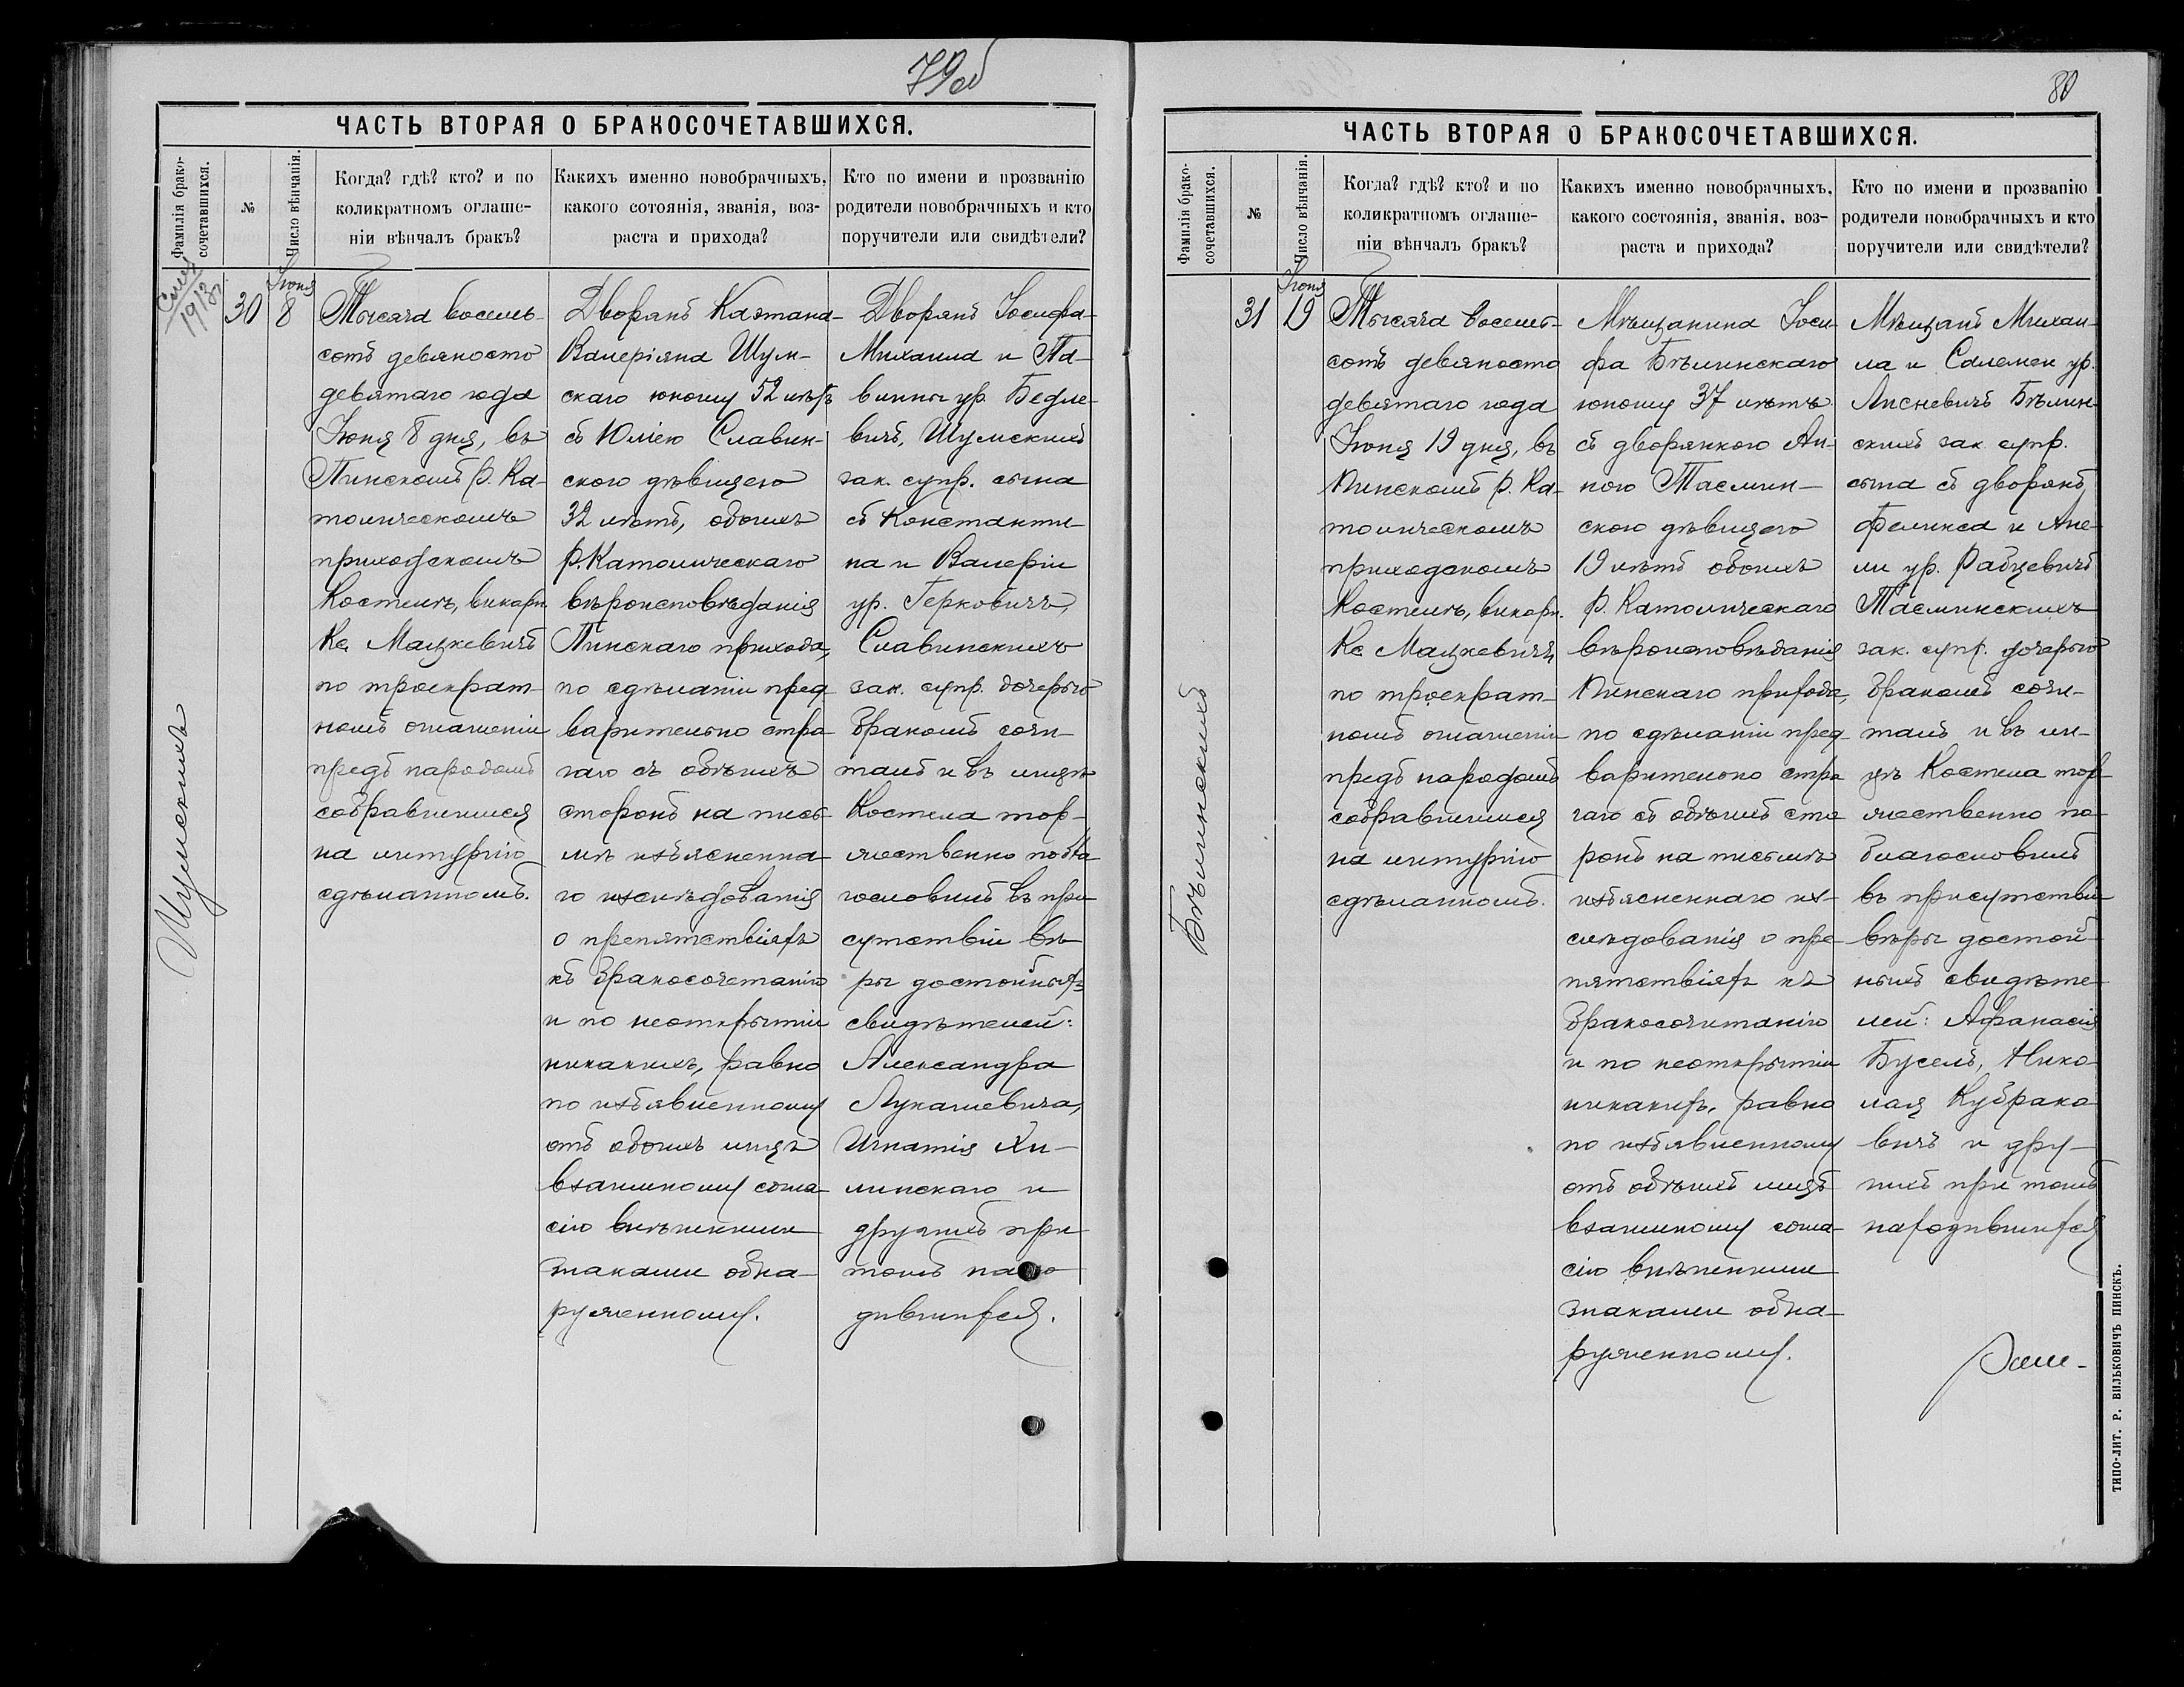 79об
ЧАСТЬ ВТОРАЯ О БРАКОСОЧЕТАВШИХСЯ.
Фамилія брако-
сочетавшихся.
№
Число вѣнчанія.
Когда? гдѣ? кто? и по
коликратномъ оглаше-
ніи вѣнчалъ бракъ?
Какихъ именно новобрачныхъ,
какого сотоянія, званія, воз-
раста и прихода?
Кто по имени и прозванію
родители новобрачныхъ и кто
поручители или свидѣтели?
1913г
Шумскихъ
30
Іюня
8
Тысяча восемь-
сотъ девяносто
девятаго года
Іюня 8 дня, въ
Пинскомъ Р. Ка-
толическомъ
приходскомъ
Костелѣ, викарн.
Кс. Мацкевичъ
по троекрат-
номъ оглашеніи
предъ народомъ
собравшимся
на литургію
сдѣланномъ.
Дворянъ Каэтана-
Валеріяна Шум-
скаго юношу 52 лѣтъ
съ Юліею Славин-
скою дѣвицею
32 лѣтъ, обоихъ
Р. Католическаго
вѣроисповѣданія
Пинскаго прихода,
по сдѣланіи пред-
варительно стро
гаго съ обѣихъ
сторонъ на пись-
мѣ изъясненна-
го изслѣдованія
о препятствіяхъ
къ бракосочетанію
и по неоткрытіи
никакихъ, равно
по изъявленному
отъ обоихъ лицъ
взаимному согла-
сію внѣшними
знаками обна-
руженному.
Дворянъ Іосифа-
Михаила и Па-
вины ур. Бедле-
вичъ, Шумскихъ
зак. супр. сына
съ Константи-
на и Валеріи
ур. Герковичъ,
Славинскихъ
зак. супр. дочерью
бракомъ соче-
талъ и въ лицѣ
Костела тор-
жественно побла
гословилъ въ при
сутствіи вѣ-
ры достойныхъ
свидѣтелей:
Александра
Лукашевича,
Игнатія Хи-
линскаго и
другихъ при
томъ нахо
дившихся.
80
ЧАСТЬ ВТОРАЯ О БРАКОСОЧЕТАВШИХСЯ.
Фамилія брако-
сочетавшихся.
№
Число вѣнчанія.
Когда? гдѣ? кто? и по
коликратномъ оглаше-
ніи вѣнчалъ бракъ?
Какихъ именно новобрачныхъ,
какого состоянія, званія, воз-
раста и прихода?
Кто по имени и прозванію
родители новобрачныхъ и кто
поручители или свидѣтели?
Бѣлинскихъ
31
Іюня
19
Тысяча восемь-
сотъ девяносто
девятаго года
Іюня 19 дня, въ
Пинскомъ Р. Ка-
толическомъ
приходскомъ
Костелѣ, викарн.
Кс Мацкевичъ
по троекрат-
номъ оглашеніи
предъ народомъ
собравшимся
на литургію
сдѣланномъ.
Мѣщанина Іоси-
фа Бѣлинскаго
юношу 37 лѣтъ
съ дворянкою Ан-
ною Тасмин-
скою дѣвицею
19 лѣтъ обоихъ
Р. Католическаго
вѣроисповѣданія
Пинскаго прихода,
по сдѣланіи пред-
варительно стро
гаго съ обѣихъ сто
ронъ на письмѣ
изъясненнаго из-
слѣдованія о пре-
пятствіяхъ къ
бракосочитанію
и по неоткрытіи
никакихъ, равно
по изъявленному
отъ обѣихъ лицъ
взаимному согла-
сію внѣшними
знаками обна-
руженному.
Мѣщанъ Михаи-
ла и Саломеи ур.
Лисневичъ Бѣлин-
скихъ зак. супр.
сына съ дворянъ
Феликса и Ане-
ли ур. Рабцевичъ
Тасминскихъ
зак. супр. дочерью
бракомъ соче-
талъ и въ ли-
цѣ Костела тор-
жественно по-
благословилъ
въ присутствіи
вѣры достой-
ныхъ свидѣте-
лей: Афанасія
Бусель, Нико-
лая Кубрако-
вичъ и дру-
гихъ при томъ
находившихся
ТИПО-ЛИТ. Р. ВИЛЬКОВИЧЪ ПИНСКЪ.